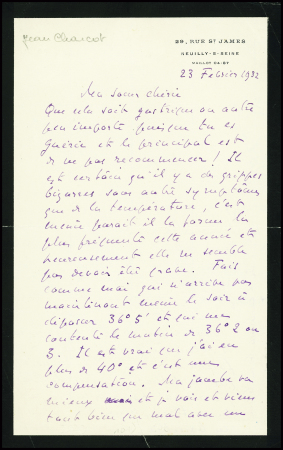 Jean Charcot
29, RUE ST JAMES
NEUILLY-S-SEINE
23 Février 1932
Ma sœur chérie
Que cela soit gastrique ou autre
peu importe puisque tu es
guérie et le principal est
de ne pas recommencer ! Il
est certain qu'il y a des grippes
bizarres sans autre symptôme
que de la température, c'est
même parait il la forme la
plus fréquente cette année et
heureusement elle ne semble
pas devoir être grave. Fais
comme moi qui n'arrive pas
maintenant même le soir à
dépasser 36°5 et qui me
contente le matin de 36°2 ou
3. Il est vrai que j'ai eu
plus de 40° et c'est une
compensation. Ma jambe va
mieux et je vais et viens
tant bien que mal avec un